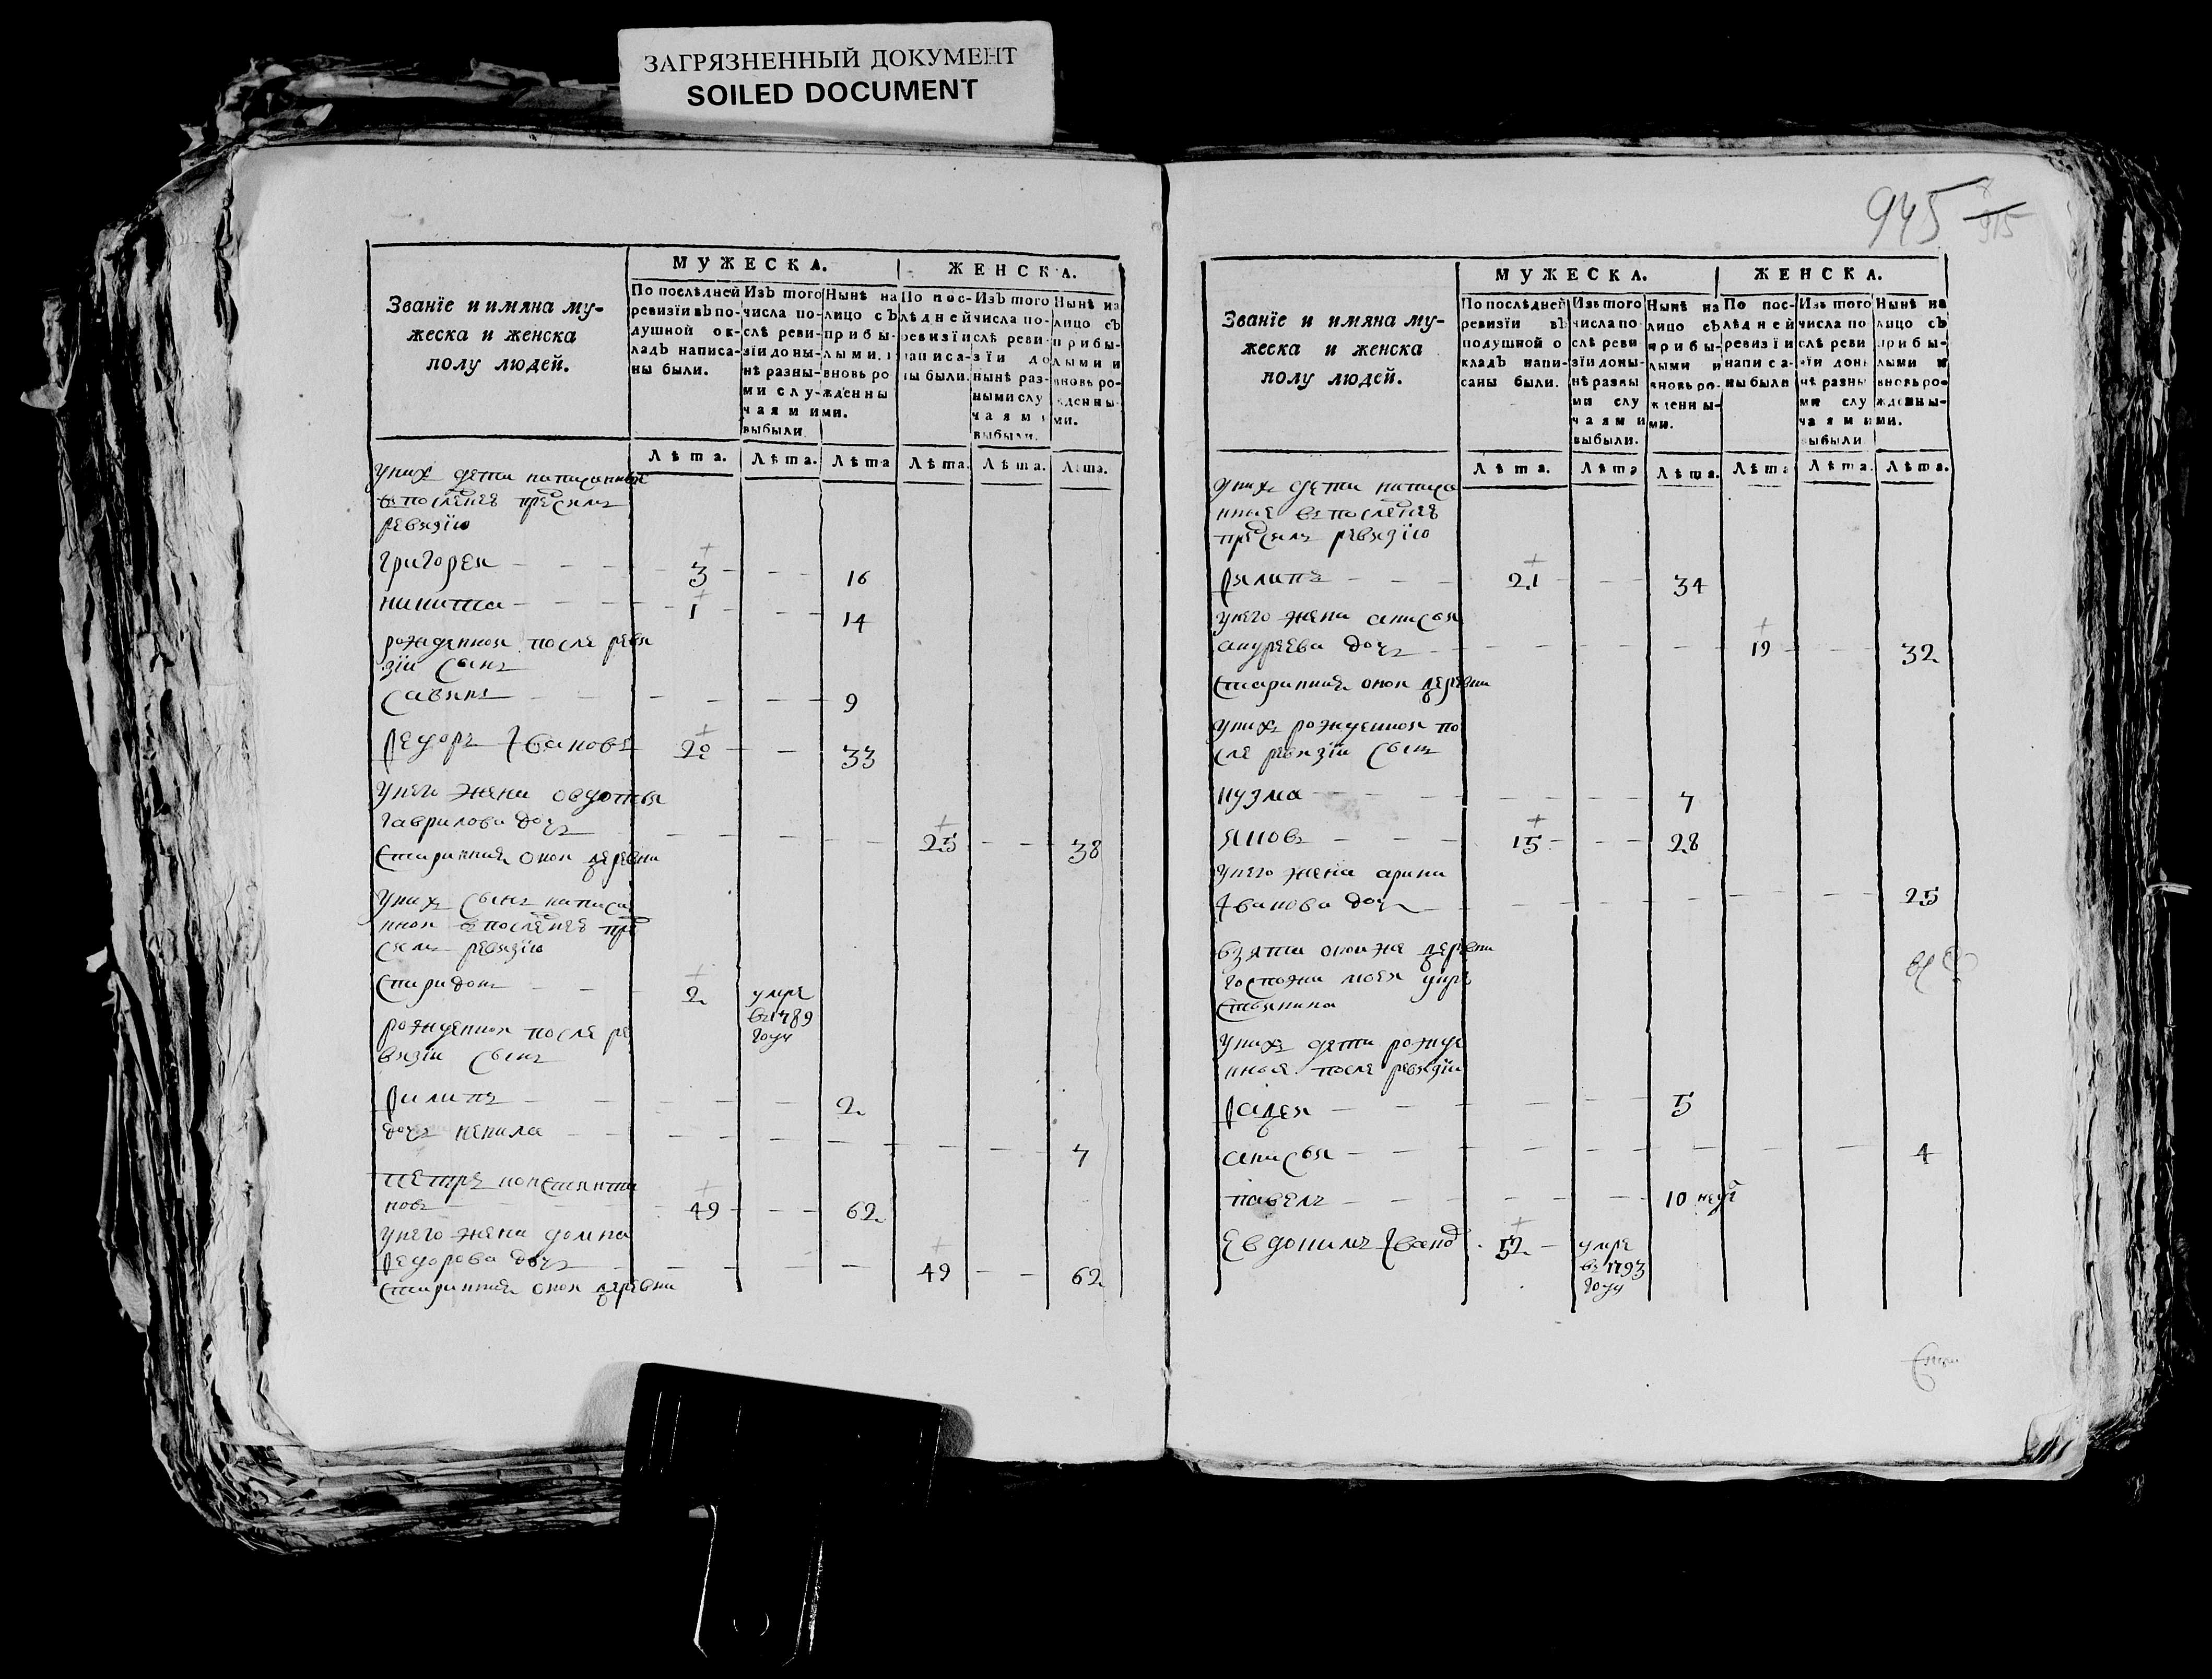 ЗАГРЯЗНЕННЫЙ ДОКУМЕНТ
SOILED DOCUMENT
Званїе и имяна му-
жеска и женска
полу людей.
МУЖЕСКА.
ЖЕНСКА.
По послѣдней ревизїи въ по-душной ок-ладъ написа-ны были.
Изъ того числа по-слѣ реви-зїи доны-нѣ разны-ми слу-чаями выбыли.
Нынѣ на лицо съ прибы-лыми, и вновь ро-жденны ми.
По пос-лѣдней ревизїи написа-ны были.
Изъ того числа по-слѣ реви-зїи до нынѣ раз-ными слу чаями выбыли.
Нынѣ на лицо съ прибы-лыми и вновь ро-жденны-ми.
Лѣта. Лѣта. Лѣта Лѣта. Лѣта. Лѣта.
уних дети написанные
въпоследнею пред симъ
ревизїю
григореи 3 16
никита 1 14
рожденной после реви
зїи сынъ
савинъ 9
федоръ Ивановъ 20 33
унего жена овдотья
гаврилова доч 25 38
старинная оной деревни
уних сынъ написа
нной въпоследнею пред
симъ ревизїю
спиридонъ 2 умре
въ1789
году
рожденной после ре
визїи сынъ
филипъ 2
дочь ненила 7
петръ констянти
новъ 49 62
унего жена домна
федорова доч 49 62
старинная оной деревни
945
915
Званїе и имяна му-
жеска и женска
полу людей.
МУЖЕСКА.
ЖЕНСКА.
По послѣдней ревизїи въ подушной о кладъ напи-саны были.
Изъ того числа по слѣ реви зїи доны-нѣ разны ми слу чаями выбыли.
Нынѣ на лицо съ прибы-лыми и вновь ро-жденны-ми.
По пос-лѣдней ревизїи написа-ны были
Изъ того числа по слѣ реви зїи доны нѣ разны ми слу чаями выбыли
Нынѣ на лицо съ прибы-лыми и вновь ро-жденны-ми.
Лѣта. Лѣта Лѣта. Лѣта Лѣта. Лѣта.
уних дети написа
нные въпоследнею
пред симъ ревизїю
филипъ 21 34
унего жена анисья
андреева доч 19 32
старинная оной деревни
унихъ рожденной по
сле ревизїи сынъ
кузма 7
яковъ 15 28
унего жена арина
Иванова доч 25
взята оной же деревни
госпожи моей укре
стьянина
унихъ дети рожде
нные после ревизїи
фадеи 5
анисья 4
павелъ 10 недѣ
Евдокимъ Иванов 52 умре
въ 1793
году